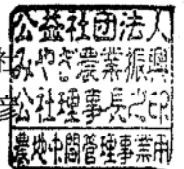 公益社団法人
みやぎ農業振興
公社理事長之印
農地中間管理事業用